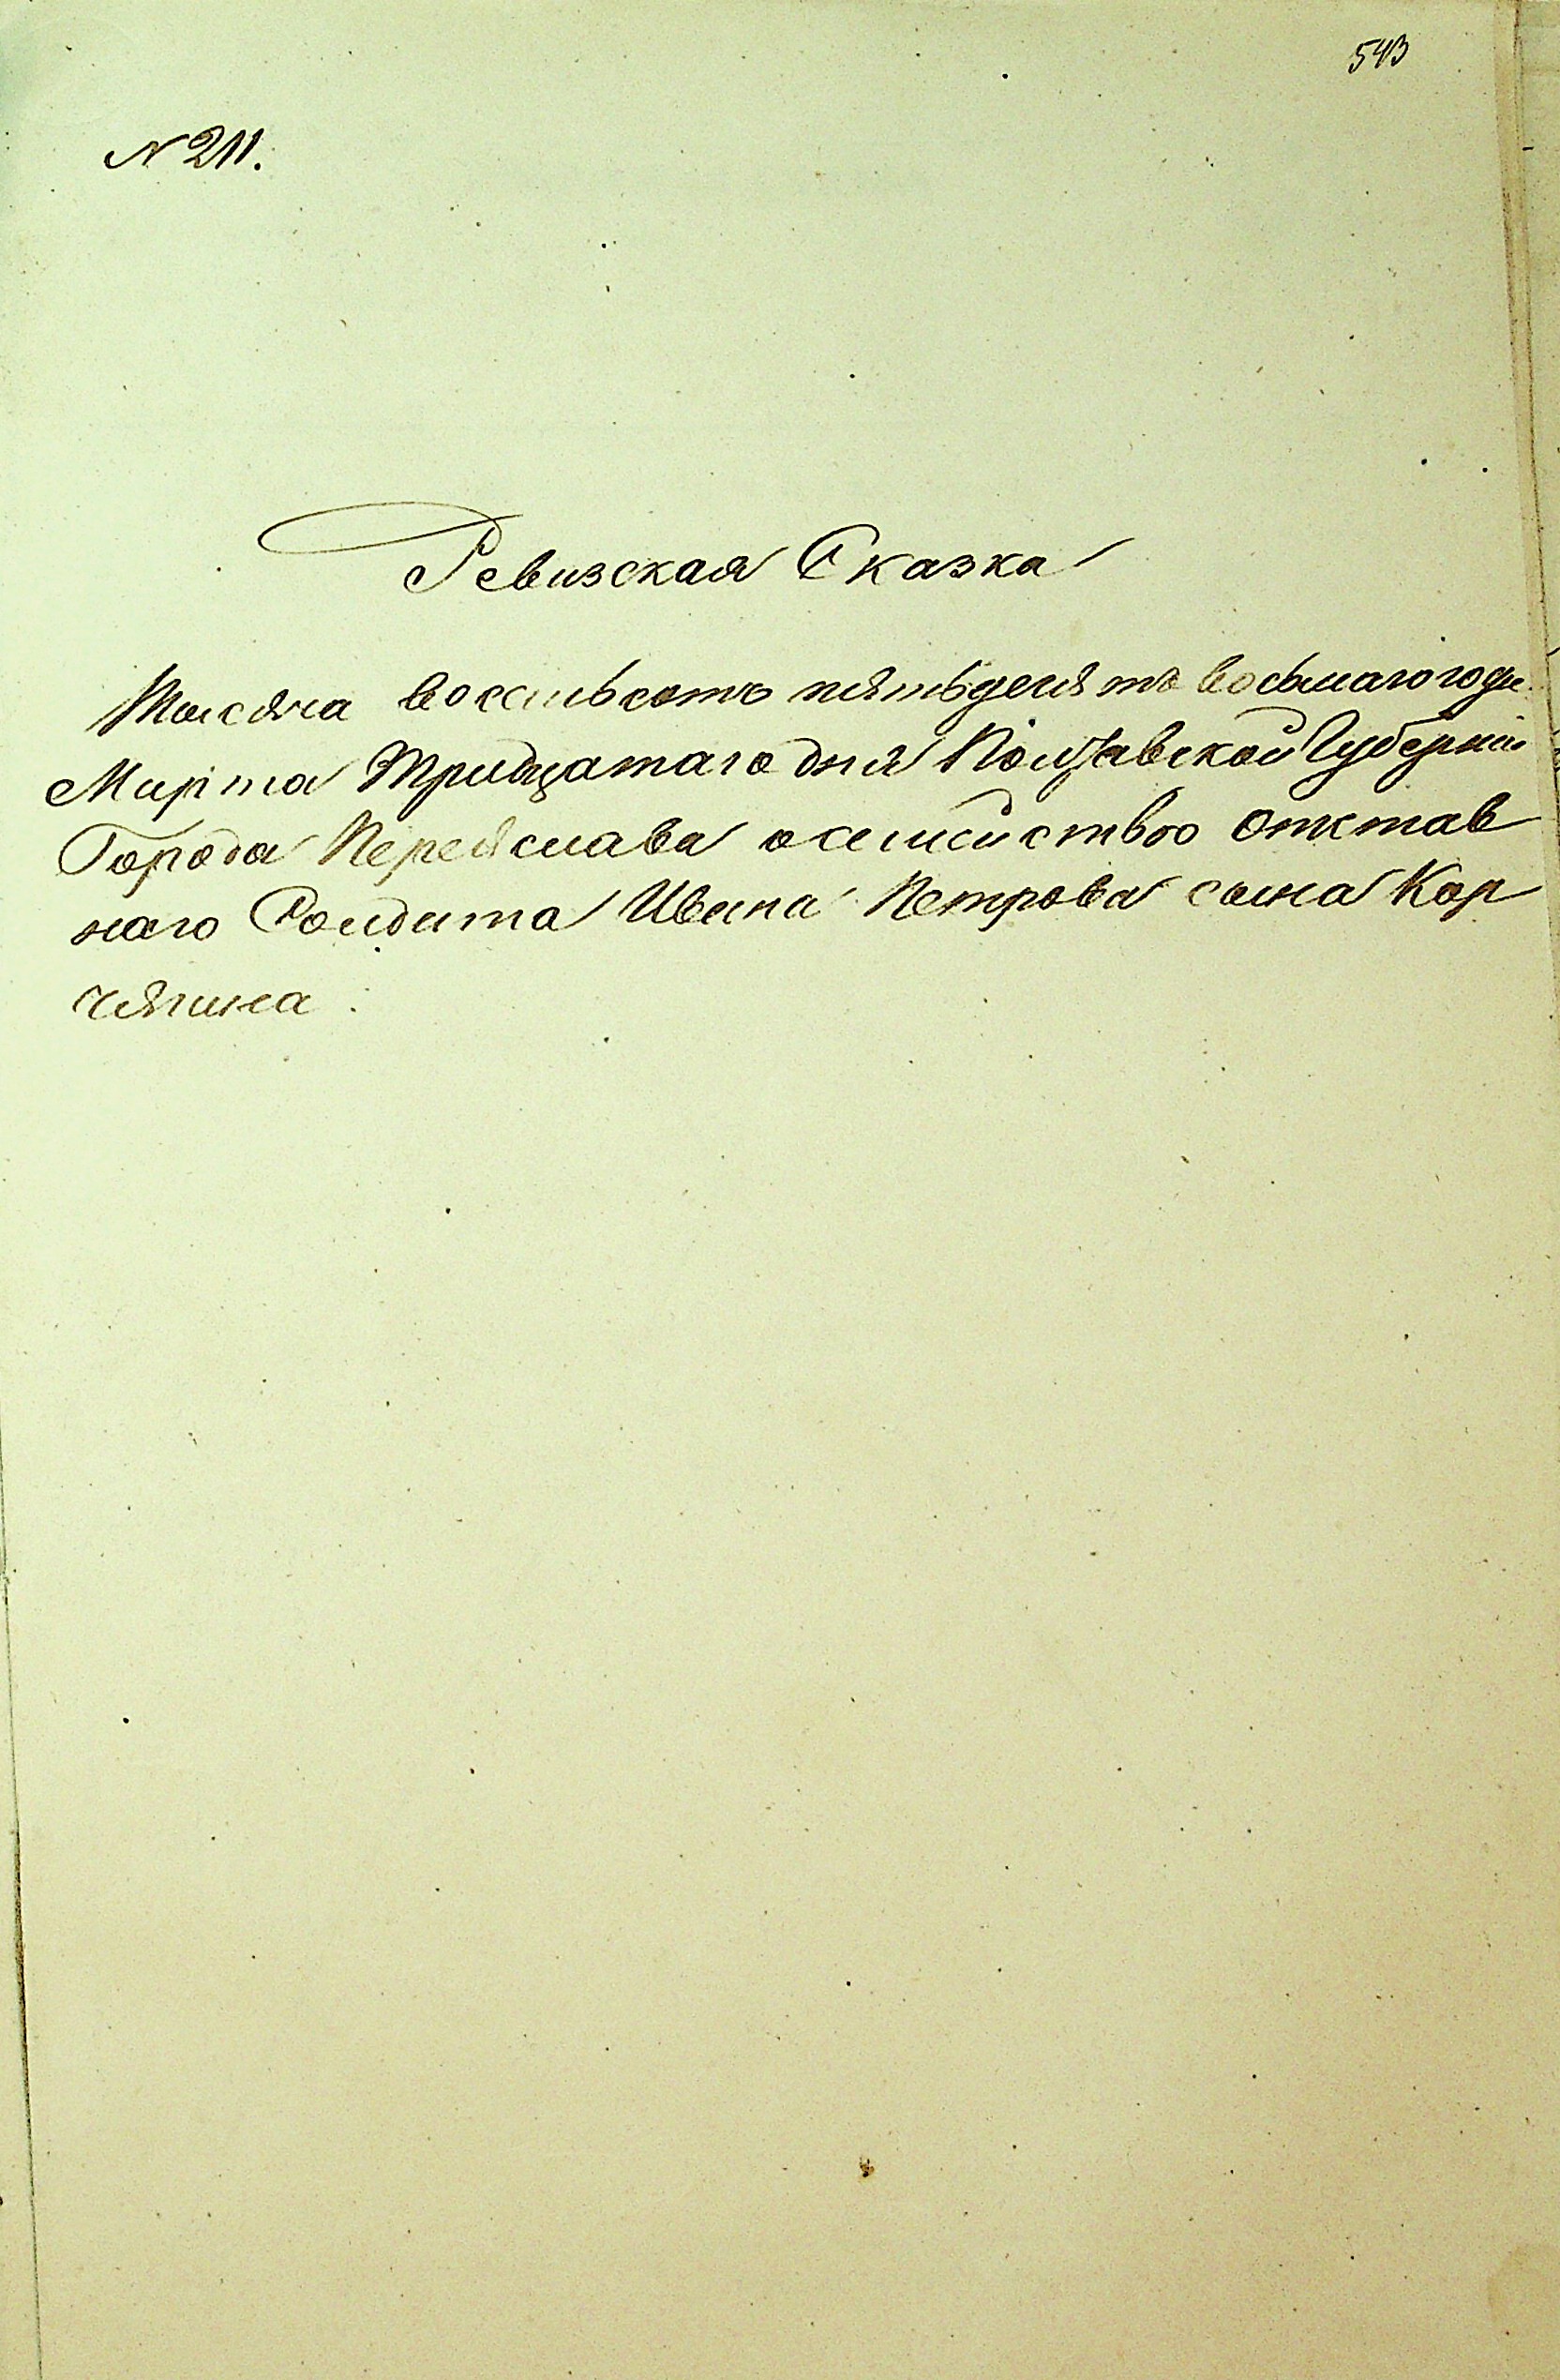 543
№ 211.
Ревизская Сказка
Тысяча восемьсотъ пятьдесятъ восьмаго года
Марта Тридцатаго дня Полтавской Губерніи
Города Переяслава о семействѣ отстав
наго Солдата Ивана Петрова сына Кор
чягина